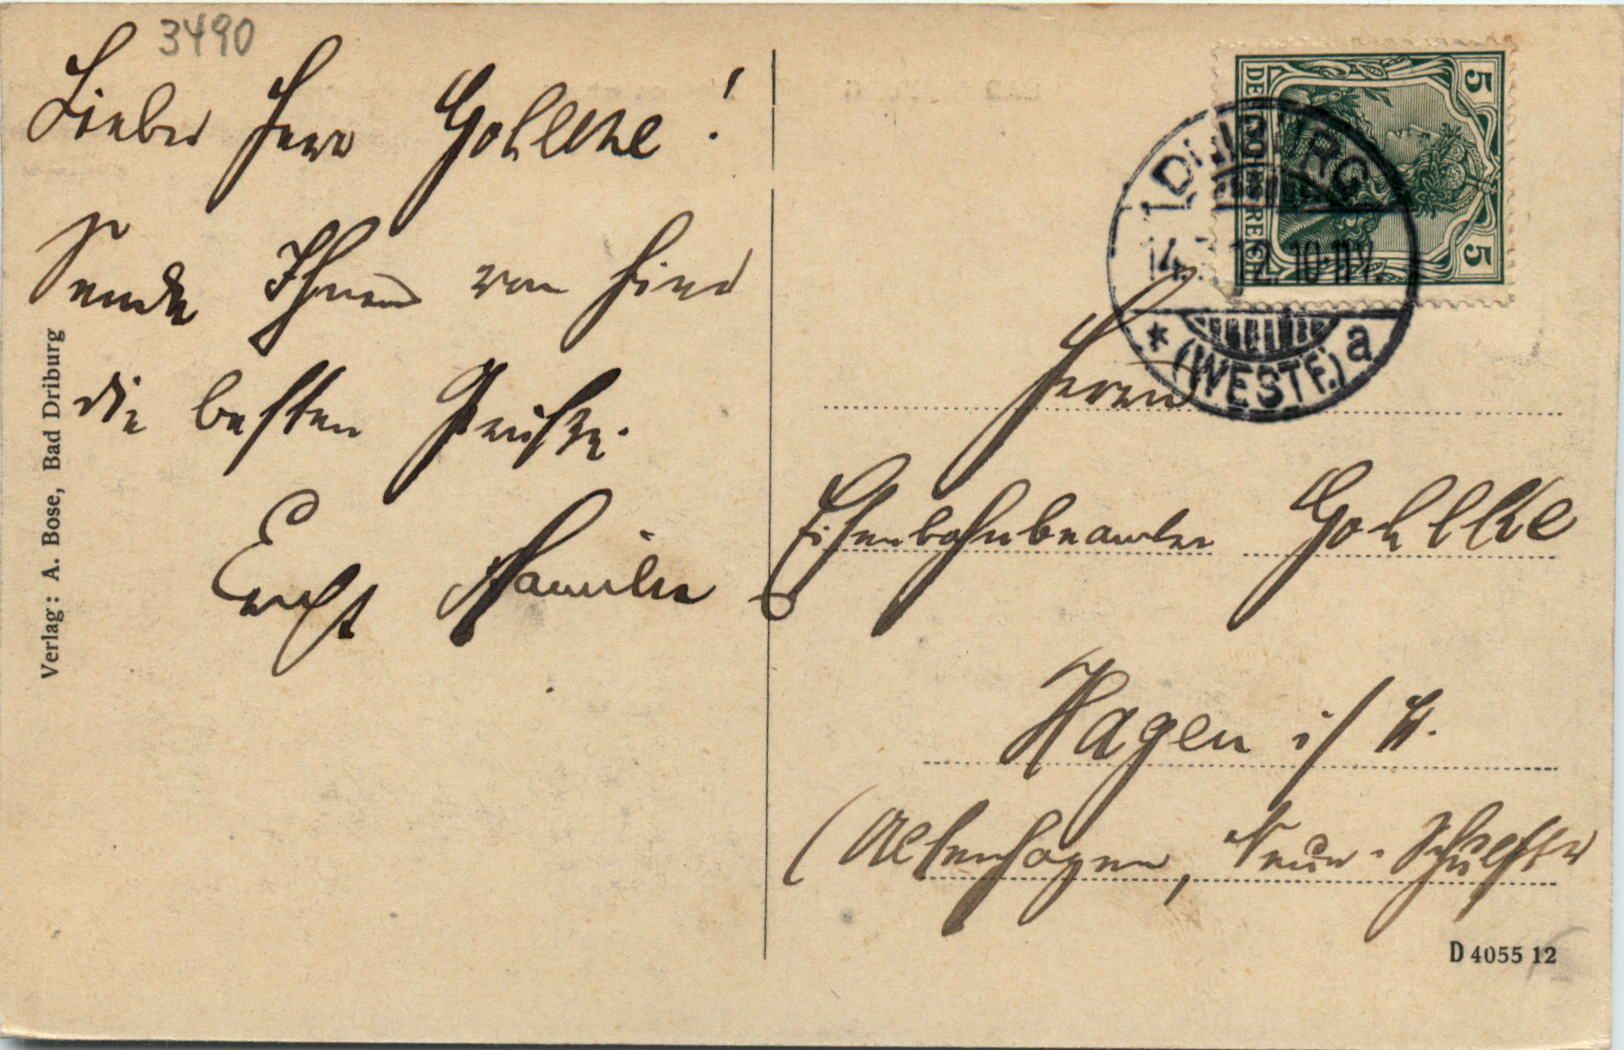 3490
Lieber Herr Gohlke!
Sende Ihnen von hier
die besten Grüße.
Ernst
Verlag: A. Bose, Bad Driburg
DEUTSCHES REICH
5
5
DRIBURG
12. 10-11V.
* (WESTF.) a
Herrn
Eisenbahnbeamter Gohlke
Hagen i/W.
(Altenhagen,
D 4055 12